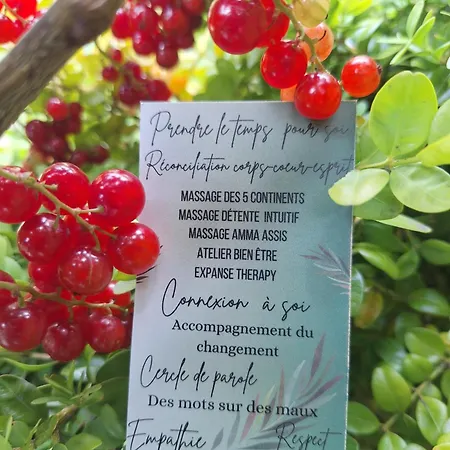 Prendre le temps pour soi
Réconciliation corps-coeur-esprit
MASSAGE DES 5 CONTINENTS
MASSAGE DÉTENTE INTUITIF
MASSAGE AMMA ASSIS
ATELIER BIEN ÊTRE
EXPANSE THERAPY
Connexion à soi
Accompagnement du
changement
Cercle de parole
Des mots sur des maux
Empathie Respect